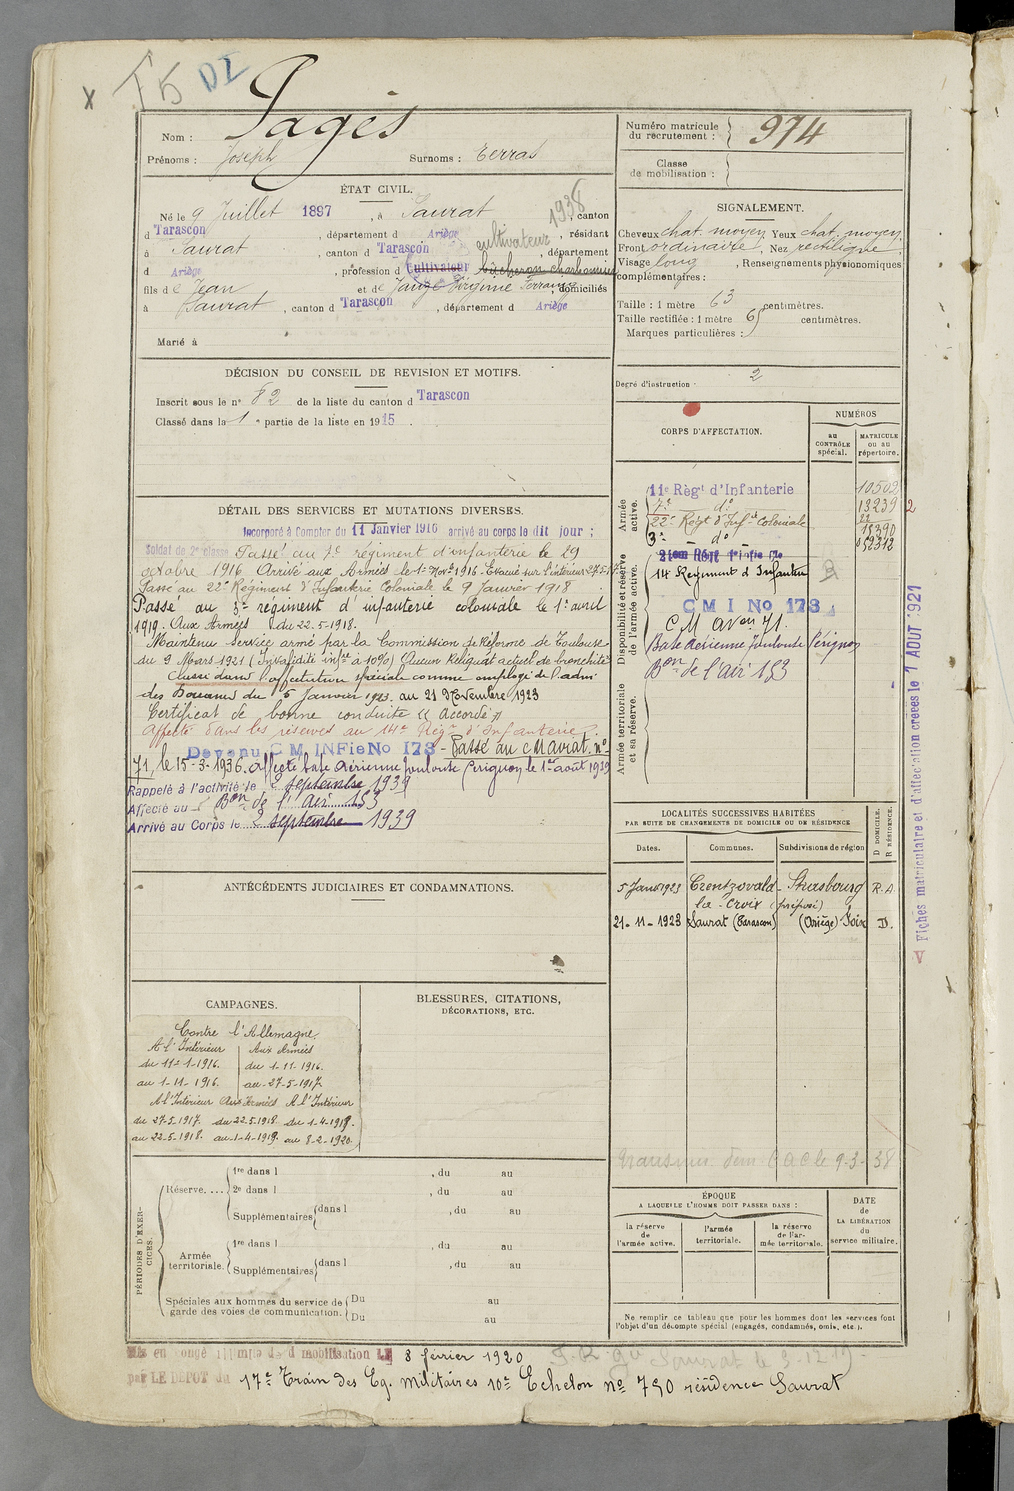 x F5 DI
Nom : Pagès
Prénoms : Joseph Surnoms : Terras
Numéro matricule du recrutement : 974
Classe de mobilisation :
ÉTAT CIVIL.
Né le 9 Juillet 1897, à Saurat 1938, canton
d Tarascon, département d Ariège, résidant
à Saurat, canton d Tarascon cultivateur, département
d Ariège, profession d Cultivateur bûcheron charbonnier
fils de Jean et de Virginie, domiciliés
à Saurat, canton d Tarascon, département d Ariège
Marié à
SIGNALEMENT.
Cheveux chat. moyen Yeux chat. moyen
Front ordinaire, Nez rectiligne
Visage long, Renseignements physionomiques
complémentaires :
Taille : 1 mètre 63 centimètres.
Taille rectifiée : 1 mètre 65 centimètres.
Marques particulières :
Degré d'instruction : 2
DÉCISION DU CONSEIL DE REVISION ET MOTIFS.
Inscrit sous le n° 82 de la liste du canton d Tarascon
Classé dans la 1e partie de la liste en 1915.
DÉTAIL DES SERVICES ET MUTATIONS DIVERSES.
Incorporé à Compter du 11 Janvier 1916 arrivé au corps le dit jour ;
Soldat de 2e classe Passé au 7e régiment d'infanterie le 29
octobre 1916 Arrivé aux Armées le 1er Nov. 1916. Evacué sur l'intérieur 27-5-17
Passé au 22e Régiment d'Infanterie Coloniale le 9 Janvier 1918
Passé au 3e régiment d'infanterie coloniale le 1er avril
1919. Aux Armées du 22.5.1918.
Maintenu Service armé par la Commission de Réforme de Toulouse
du 9 Mars 1921 (Invalidité infre à 10%) Aucun Reliquat actuel de bronchite
Classé dans l'affectation spéciale comme employé de l'admon
des Douanes du 5 Janvier 1923. au 21 Novembre 1923
Certificat de bonne conduite "Accordé"
Affecté dans les réserves au 14e Régt d'Infanterie.
Devenu C M INFie No 173 - Passé au C M avrat. n°
71, le 15-3-1936. Affecté base Aérienne Toulouse Pérignon le 1er août 1939
Rappelé à l'activité le 2 septembre 1939
Affecté au Bon de l'Air 153
Arrivé au Corps le 2 septembre 1939
CORPS D'AFFECTATION.
NUMÉROS
au CONTRÔLE spécial.
MATRICULE ou au répertoire.
Armée active.
11e Régt d'Infanterie 10502
7e do 13239 2
22e Régt d'Infie Coloniale 22
3e do 18390
Disponibilité et réserve de l'armée active.
14 Régiment d'Infanterie
C M I No 173
C M avon 71.
Base Aérienne Toulouse Pérignon
Bon de l'Air 153
Armée territoriale et sa réserve.
Fiches matriculaire et d'affectation créées le 7 AOUT 1921
LOCALITÉS SUCCESSIVES HABITÉES
PAR SUITE DE CHANGEMENTS DE DOMICILE OU DE RÉSIDENCE
Dates. Communes. Subdivisions de région D DOMICILE. R RÉSIDENCE.
5 Janv 1923 Strasbourg R.
la-Croix (préposé)
21-11-1923 Saurat (Tarascon) (Ariège) Foix D.
ANTÉCÉDENTS JUDICIAIRES ET CONDAMNATIONS.
CAMPAGNES.
Contre l'Allemagne
A l'Intérieur Aux Armées
du 11-1-1916. du 1-11-1916.
au 1-11-1916. au 27-5-1917.
A l'Intérieur Aux Armées A l'Intérieur
du 27-5-1917. du 22.5.1918. du 1-4-1919.
au 22-5-1918. au 1-4-1919. au 8-2-1920.
BLESSURES, CITATIONS,
DÉCORATIONS, ETC.
PÉRIODES D'EXERCICES.
Réserve. ... 1re dans l , du au
2e dans l , du au
Supplémentaires dans l , du au
Armée territoriale. 1re dans l , du au
Supplémentaires dans l , du au
Spéciales aux hommes du service de garde des voies de communication. Du au
Du au
C A C le 9-3-38
ÉPOQUE
A LAQUELLE L'HOMME DOIT PASSER DANS :
la réserve de l'armée active.
l'armée territoriale.
la réserve de l'armée territoriale.
DATE DE LA LIBÉRATION du service militaire.
Ne remplir ce tableau que pour les hommes dont les services font
l'objet d'un décompte spécial (engagés, condamnés, omis, etc.).
Mis en congé illimité de démobilisation LE 8 février 1920
par LE DEPOT du 17e Train des Eq. Militaires 10e Echelon no 750 résidence Saurat
Saurat le 3-12-19